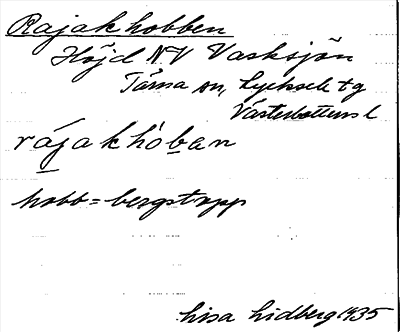 Rajakhobben
Höjd NV Vasksjön
Tärna sn, Lycksele tg
Västerbottens l
rájakhòban
hobb = bergstopp
Lisa Lidberg 1935